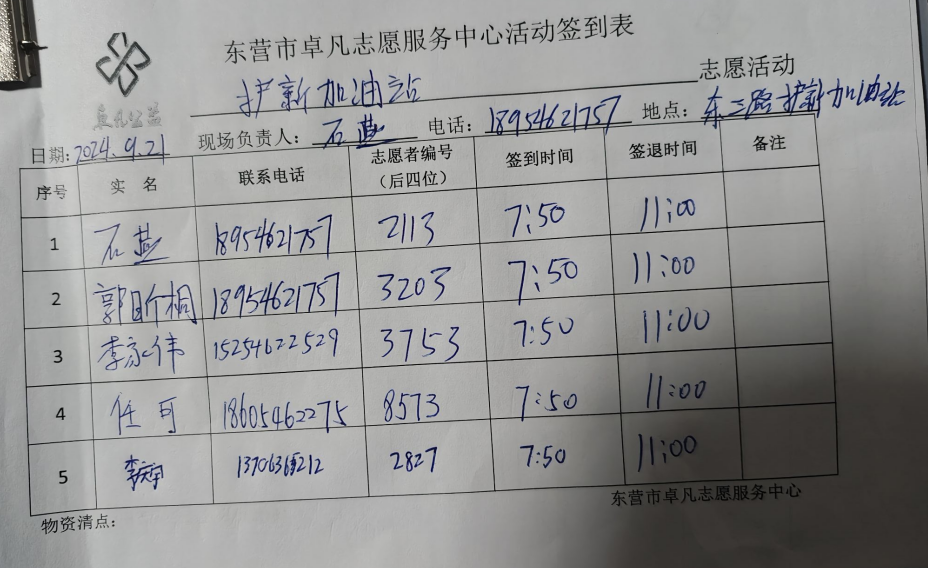 东营市卓凡志愿服务中心活动签到表
卓凡公益
护新加油站 志愿活动
日期:2024.9.21 现场负责人:石燕 电话:18954621757 地点:东三路护新加油站
序号 实 名 联系电话 志愿者编号（后四位） 签到时间 签退时间 备注
1 石燕 18954621757 2113 7:50 11:00
2 郭昕桐 18954621757 3203 7:50 11:00
3 李家伟 15254622529 3753 7:50 11:00
4 任可 18605462275 8573 7:50 11:00
5 2827 7:50 11:00
东营市卓凡志愿服务中心
物资清点: